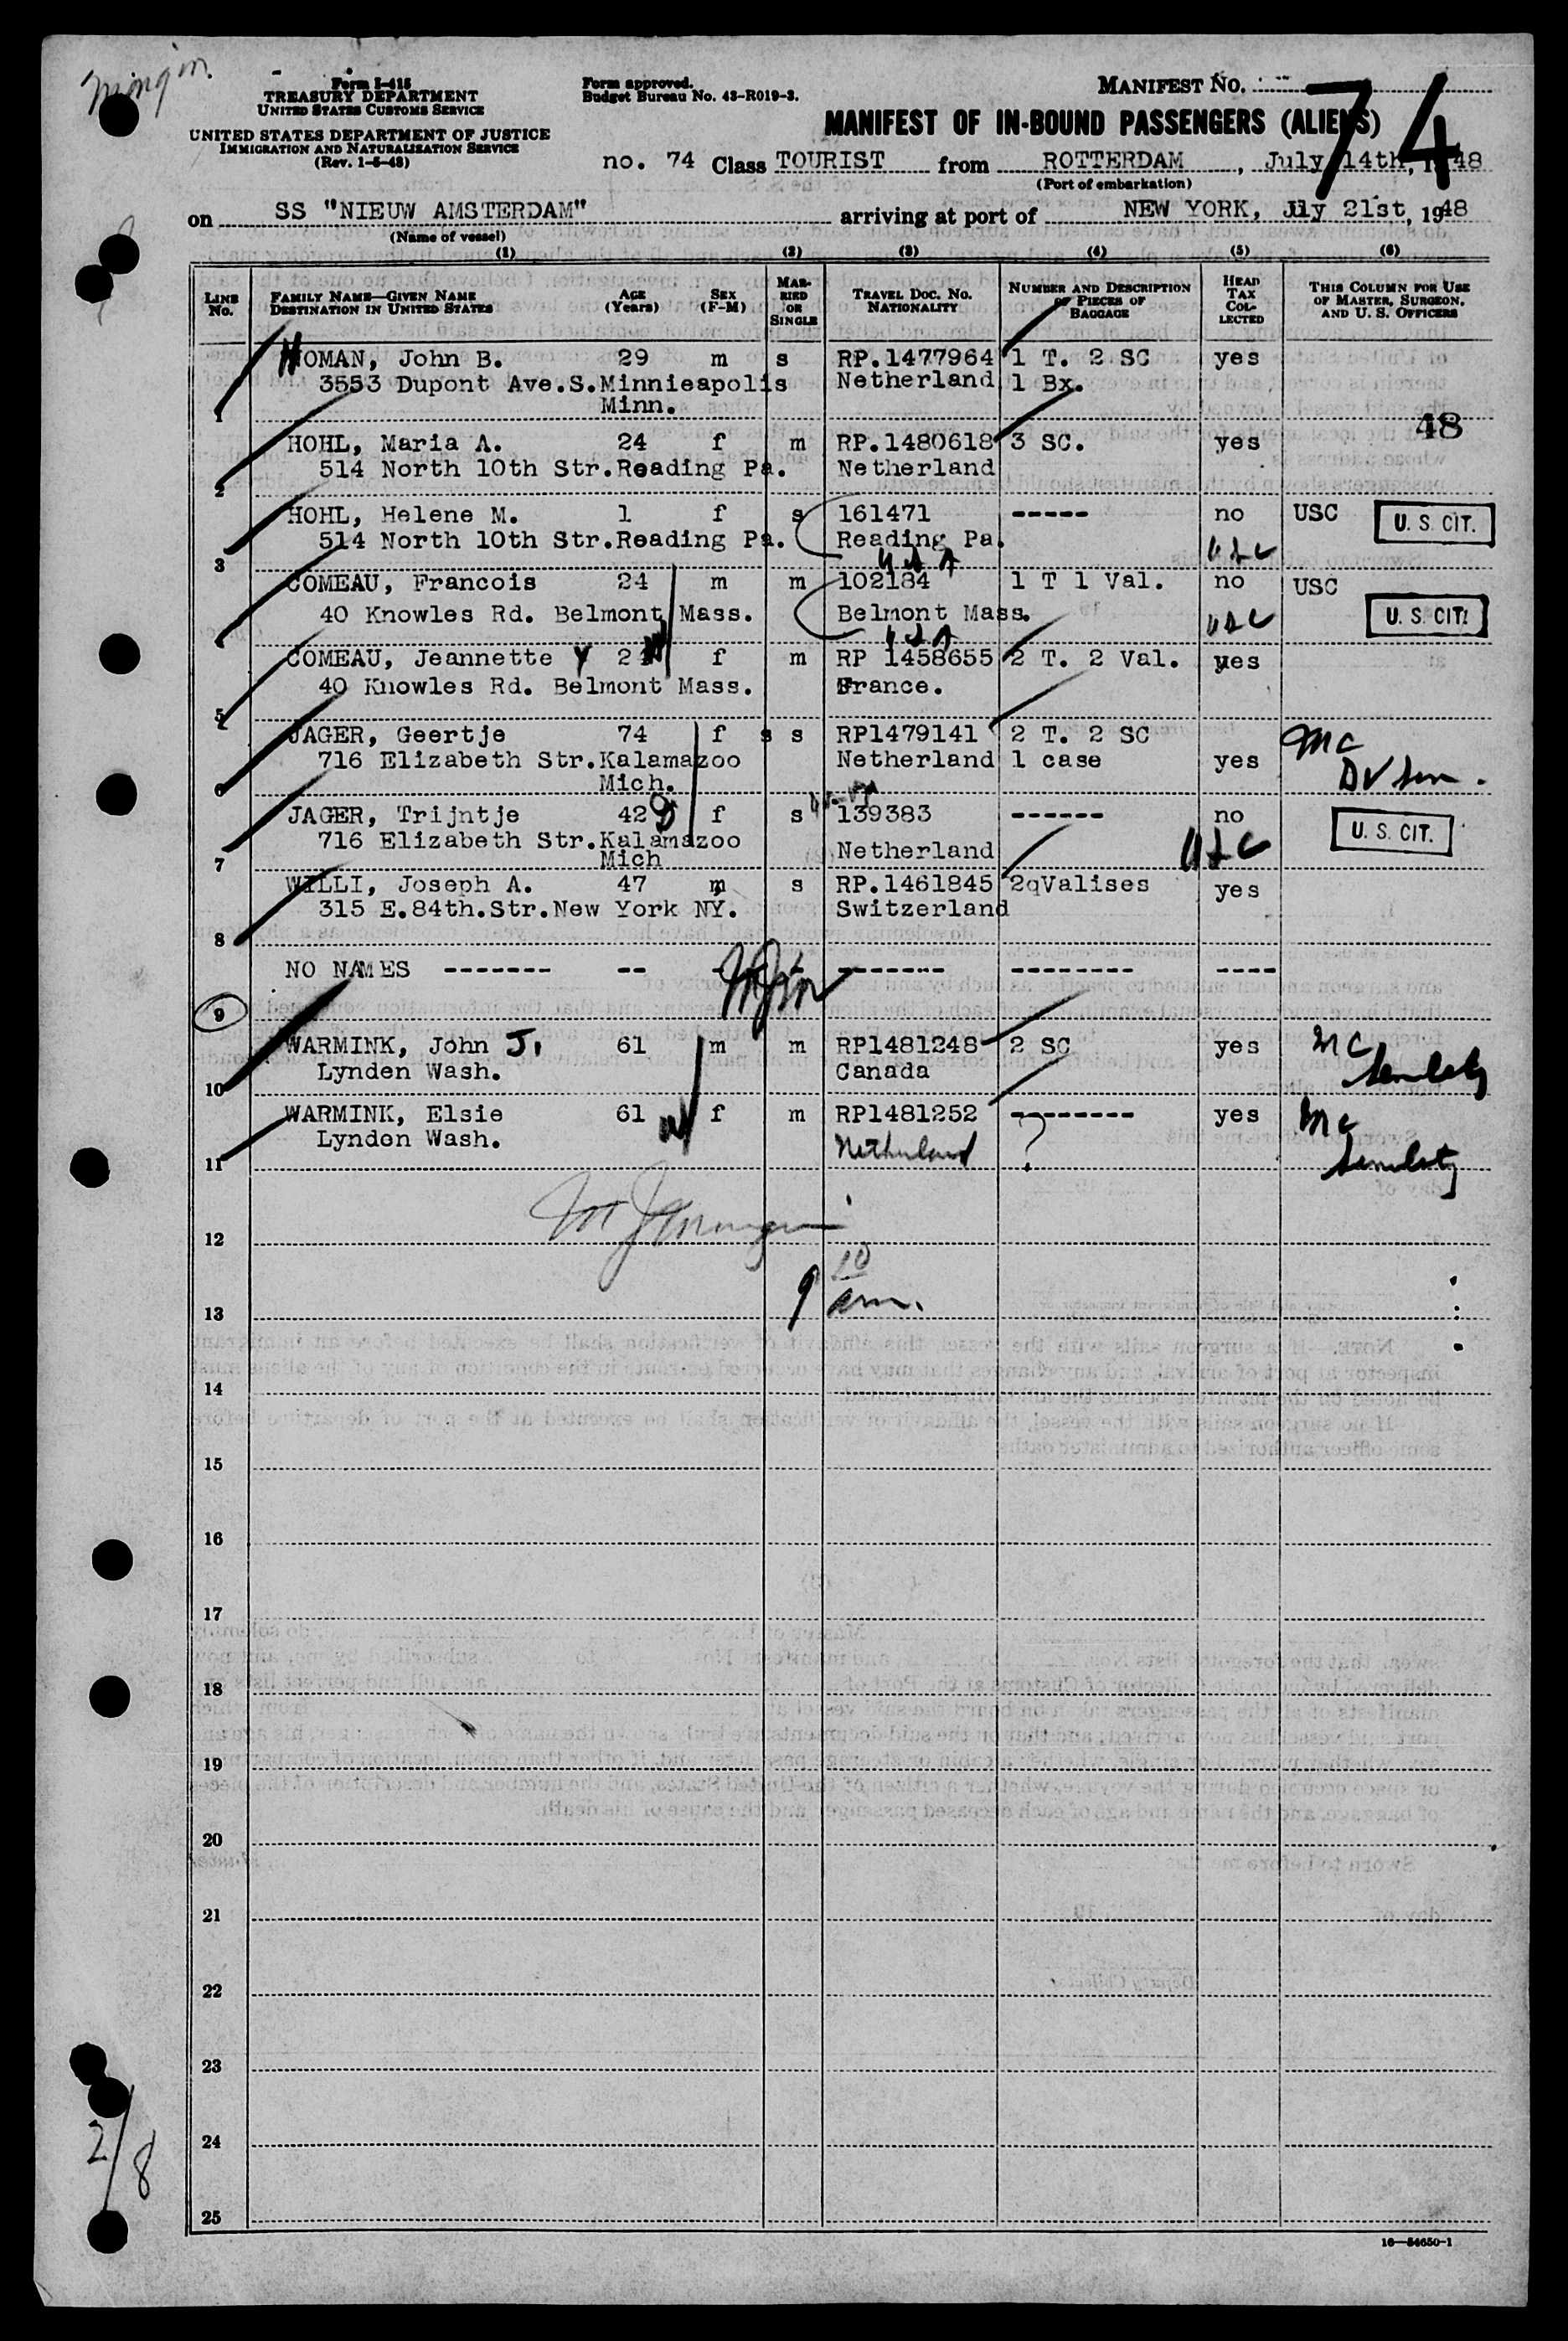 Form I-415
TREASURY DEPARTMENT
UNITED STATES CUSTOMS SERVICE
UNITED STATES DEPARTMENT OF JUSTICE
IMMIGRATION AND NATURALIZATION SERVICE
(Rev. 1-5-48)
Form approved.
Budget Bureau No. 43-R019-3.
MANIFEST NO. 74
MANIFEST OF IN-BOUND PASSENGERS (ALIENS)
no. 74 Class TOURIST from ROTTERDAM, July 14th, 1948
(Port of embarkation)
on SS "NIEUW AMSTERDAM" arriving at port of NEW YORK, Jly 21st, 1948
(Name of vessel)
(1) (2) (3) (4) (5) (6)
LINE No. FAMILY NAME—GIVEN NAME DESTINATION IN UNITED STATES AGE (YEARS) SEX (F-M) MARRIED OR SINGLE TRAVEL DOC. NO. NATIONALITY NUMBER AND DESCRIPTION OF PIECES OF BAGGAGE HEAD TAX COLLECTED THIS COLUMN FOR USE OF MASTER, SURGEON, AND U. S. OFFICERS
HOMAN, John B. 29 m s RP.1477964 1 T. 2 SC yes
3553 Dupont Ave.S.Minnieapolis Netherland 1 Bx.
Minn.
1
48
HOHL, Maria A. 24 f m RP.1480618 3 SC. yes
514 North 10th Str.Reading Pa. Netherland
2
HOHL, Helene M. 1 f s 161471 ----- no USC U. S. CIT.
514 North 10th Str.Reading Pa. Reading Pa. USC
3 USA
COMEAU, Francois 24 m m 102184 1 T 1 Val. no USC
40 Knowles Rd. Belmont Mass. Belmont Mass. USC U. S. CIT.
USA
COMEAU, Jeannette Y 24 f m RP 1458655 2 T. 2 Val. yes
40 Knowles Rd. Belmont Mass. France.
5
JAGER, Geertje 74 f s s RP1479141 2 T. 2 SC
716 Elizabeth Str.Kalamazoo Netherland 1 case yes
Mich.
6
JAGER, Trijntje 42 f s 139383 ------ no U. S. CIT.
716 Elizabeth Str.Kalamazoo Netherland USC
Mich
7
WILLI, Joseph A. 47 m s RP.1461845 2qValises yes
315 E.84th.Str.New York NY. Switzerland
8
NO NAMES ------- -- ------- -------- ----
9
WARMINK, John J. 61 m m RP1481248 2 SC yes
Lynden Wash. Canada
10
WARMINK, Elsie 61 f m RP1481252 -------- yes
Lynden Wash. Netherland ?
11
12
9 10 am.
13
14
15
16
17
18
19
20
21
22
23
24
25
2/8
16—54650-1